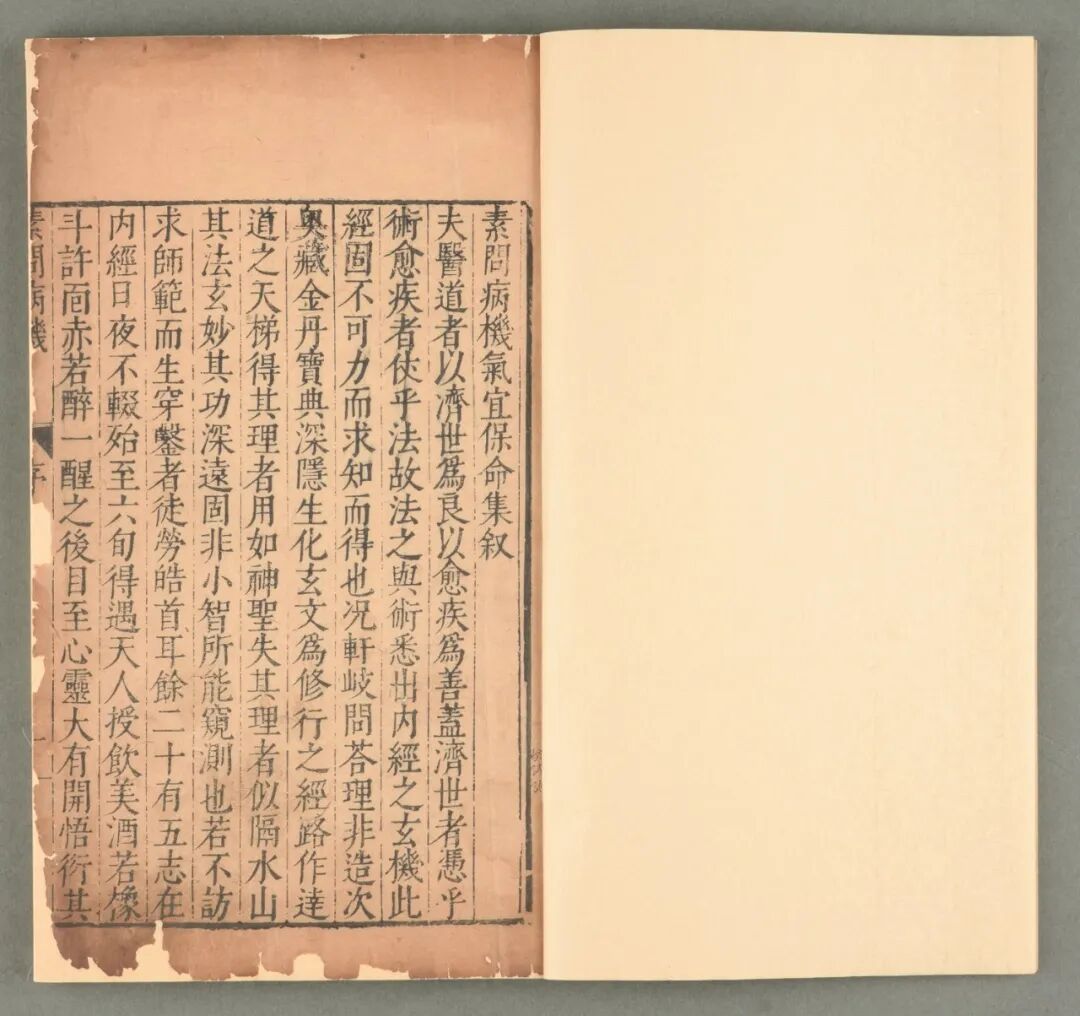 素問病機氣宜保命集叙
夫醫道者以濟世爲良以愈疾爲善蓋濟世者憑乎
術愈疾者仗乎法故法之與術悉出内經之玄機此
經固不可力而求知而得也况軒岐問荅理非造次
奥藏金丹寶典深隱生化玄文爲修行之經路作達
道之天梯得其理者用如神聖失其理者似隔水山
其法玄妙其功深遠固非小智所能窺測也若不訪
求師範而生穿鑿者徒勞皓首耳餘二十有五志在
内經日夜不輟始至六旬得遇天人授飲美酒若橡
斗許面赤若醉一醒之後目至心靈大有開悟衍其
素問病機
序